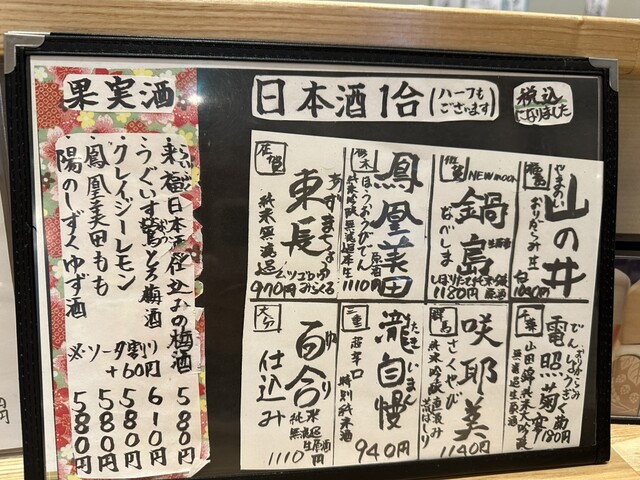 日本酒1合(ハーフもございます)
税込になりました
福島
やまのい
山の井
おりがらみ生
佐賀
NEW moon
鍋島
生原酒
なべしま
1180円
栃木
鳳凰美田
ほうおうびでん
原酒
1110円
佐賀
東長
あずまちょう
純米無濾過
970円
千葉
電照菊
でんしょうぎく
山田錦
無濾過生原酒
1180円
群馬
咲耶美
さくやび
純米吟醸直汲み
荒ばしり
1140円
三重
瀧自慢
たきじまん
辛口
特別純米酒
940円
大分
百合
ゆり
仕込み
純米
無濾過生原酒
1110円
果実酒
・来福日本酒仕込みの梅酒 580円
・うぐいすとろ梅酒 610円
・クレイジーレモン 580円
・鳳凰美田もも 580円
・陽のしずくゆず酒 580円
※ソーダ割り
+60円